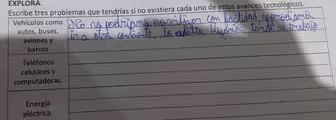 EXPLORA
Escribe tres problemas que tendrías si no existiera cada uno de estos avances tecnológicos.
Vehículos como
autos, buses,
aviones y
barcos
No nos podríamos movilizar con facilidad
ir a otro continente, la
tarde al trabajo
Teléfonos
celulares y
computadoras.
Energía
eléctrica